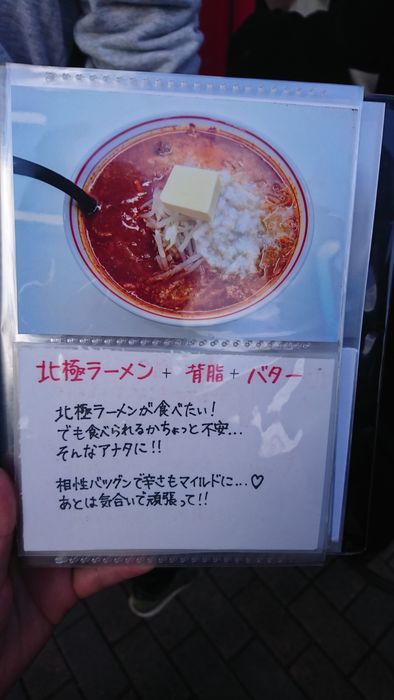 北極ラーメン + 背脂 + バター
北極ラーメンが食べたい!
でも食べられるかちょっと不安...
そんなアナタに!!
相性バツグンで辛さもマイルドに...♡
あとは気合いで頑張って!!